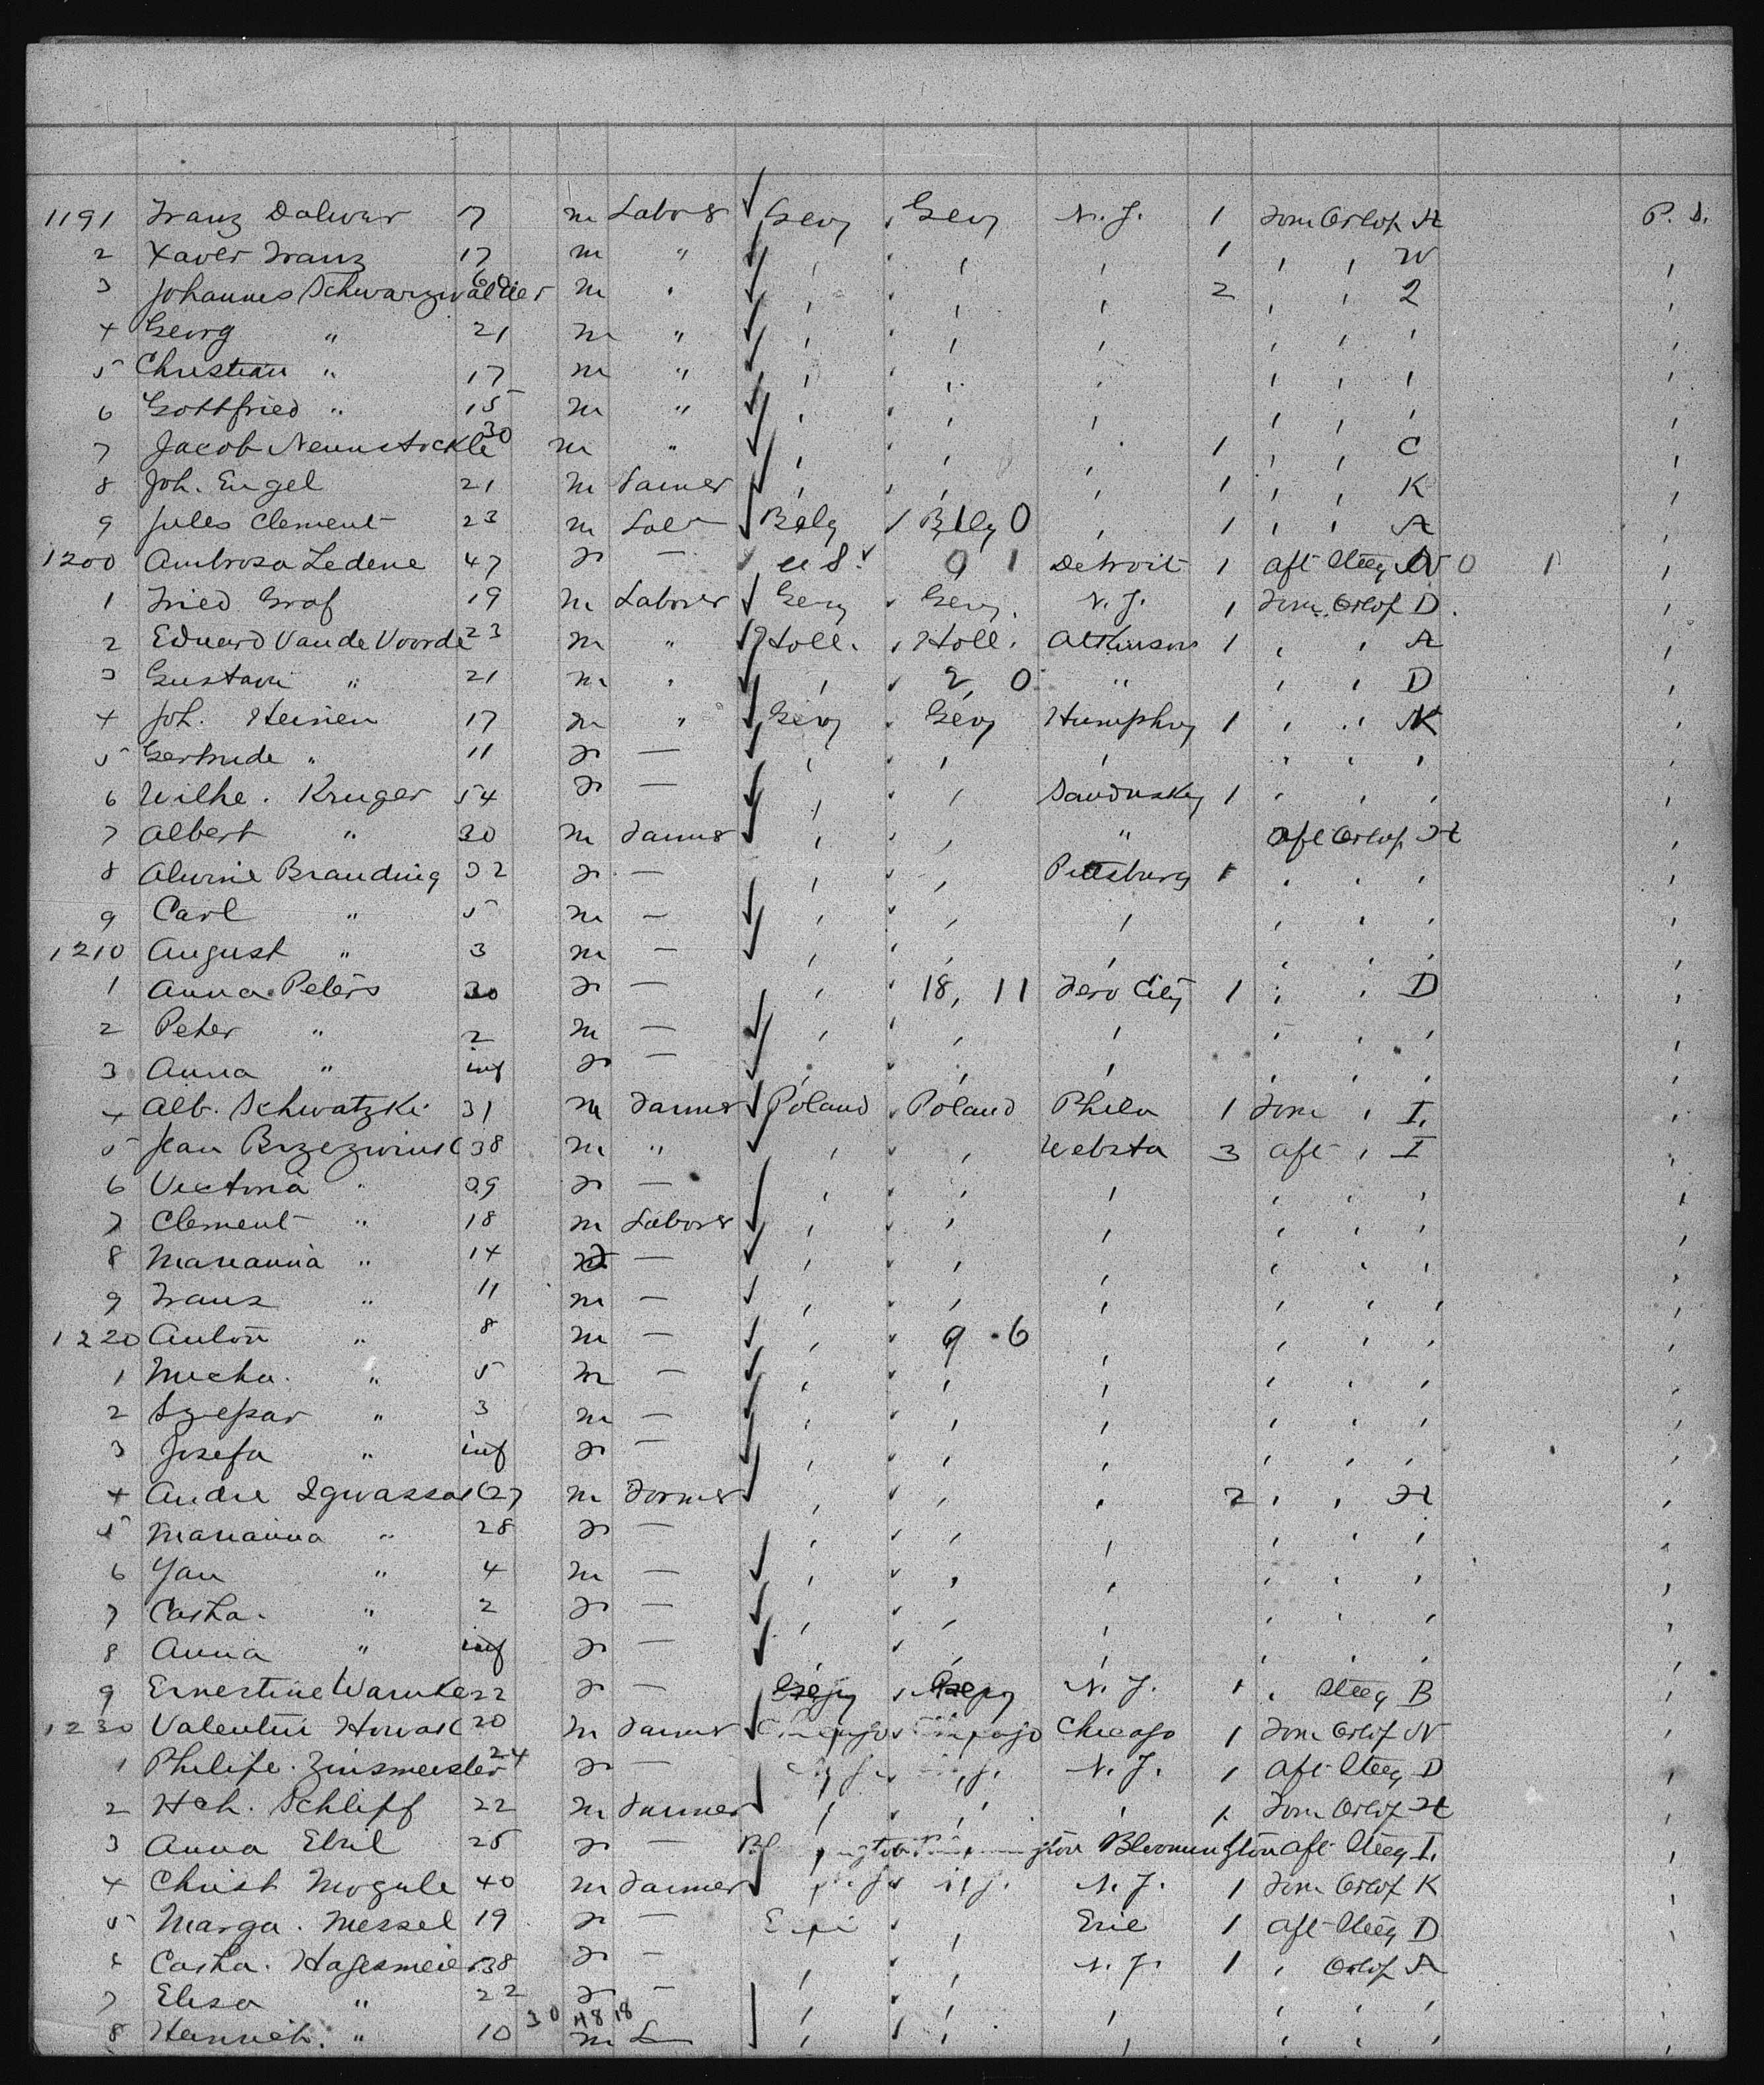 1191 Franz 7 m Labor Gery Gery N.J. 1 Form Orlop A P. D.
2 Xaver Franz 17 m " , , , 1 , , W ,
3 Johannes Schwarzwalder 60 m " , , , 2 , , 2 ,
4 Georg " 21 m " , , , , , , ,
5 Christian " 17 m " , , , , , , ,
6 Gottfried " 15 m " , , , , , , ,
7 Jacob 30 m " , , , 1 , , C ,
8 Joh. Engel 21 m Farmer , , , 1 , , K ,
9 Jules Clement 23 m Belg Belg 0 , 1 , , A ,
1200 Ambrosa Ledene 47 F — U S. 0 1 Detroit 1 aft Steeg 0 1 ,
1 Fried Graf 19 m Laborer Gery Gery. N.J. 1 Form Orlop D. ,
2 Eduard Van de Voorde 23 m " Holl. Holl. Atkinson 1 , , A ,
3 Gustav " 21 m " , 2, 0 " , , D ,
4 Joh. Heinen 17 m " Gery Gery Humphry 1 , , K ,
5 Gertrude " 11 F — , , , , , , ,
6 Wilhe. Kruger 54 F — , , Sandusky 1 , , , ,
7 Albert " 20 m Farmer , , " aft Orlop H ,
8 Alwine Branding 32 F — , , Pittsburg 1 , , , ,
9 Carl " 5 m — , , , , , , ,
1210 August " 3 m — , , , , , , ,
1 Anna Peters 30 F — , 18, 11 City 1 , , D ,
2 Peter " 2 m — , , , , , , ,
3 Anna " inf F — , , , , , , ,
4 Alb. Schwatzki 31 m Farmer Poland Poland Phila 1 Form , I. ,
5 Jean 38 m " , , Websta 3 aft , I ,
6 Victoria " 39 F — , , , , , , ,
7 Clement " 18 m Laborer , , , , , , ,
8 Marianna " 14 F — , , , , , , ,
9 Franz " 11 m — , , , , , , ,
1220 Anton " 8 m — , 9 . 6 , , , , ,
1 Micha. " 5 m — , , , , , , ,
2 Szepar " 3 m — , , , , , , ,
3 Josefa " inf F — , , , , , , ,
4 Andre 27 m Farmer , , , 2 , , H ,
5 Marianna " 28 F — , , , , , , ,
6 Jan " 4 m — , , , , , , ,
7 Catha. " 2 F — , , , , , , ,
8 Anna " inf F — , , , , , , ,
9 Ernestine Warnke 22 F — Gery Gery N.J. 1 , Steeg B ,
1230 Valentin 20 m Farmer Chicago Chicago Chicago 1 Form Orlop N ,
1 Philipe. Zinsmeister 24 F — N.J. 1 aft Steeg D ,
2 Hch. Schliff 22 m Farmer , , , 1 Form Orlop H ,
3 Anna 25 F — Bloomington aft Steeg I. ,
4 Christ Mogule 40 m Farmer N.J. 1 Form Orlop K ,
5 Marga. Messel 19 F — , Erie 1 aft Steeg D ,
6 Catha. Hagesmeier 38 F — , , N.J. 1 , Orlop A ,
7 Elisa " 22 F — , , , , , , ,
30 48 18
8 Heinrich. " 10 m L , , , , , , ,